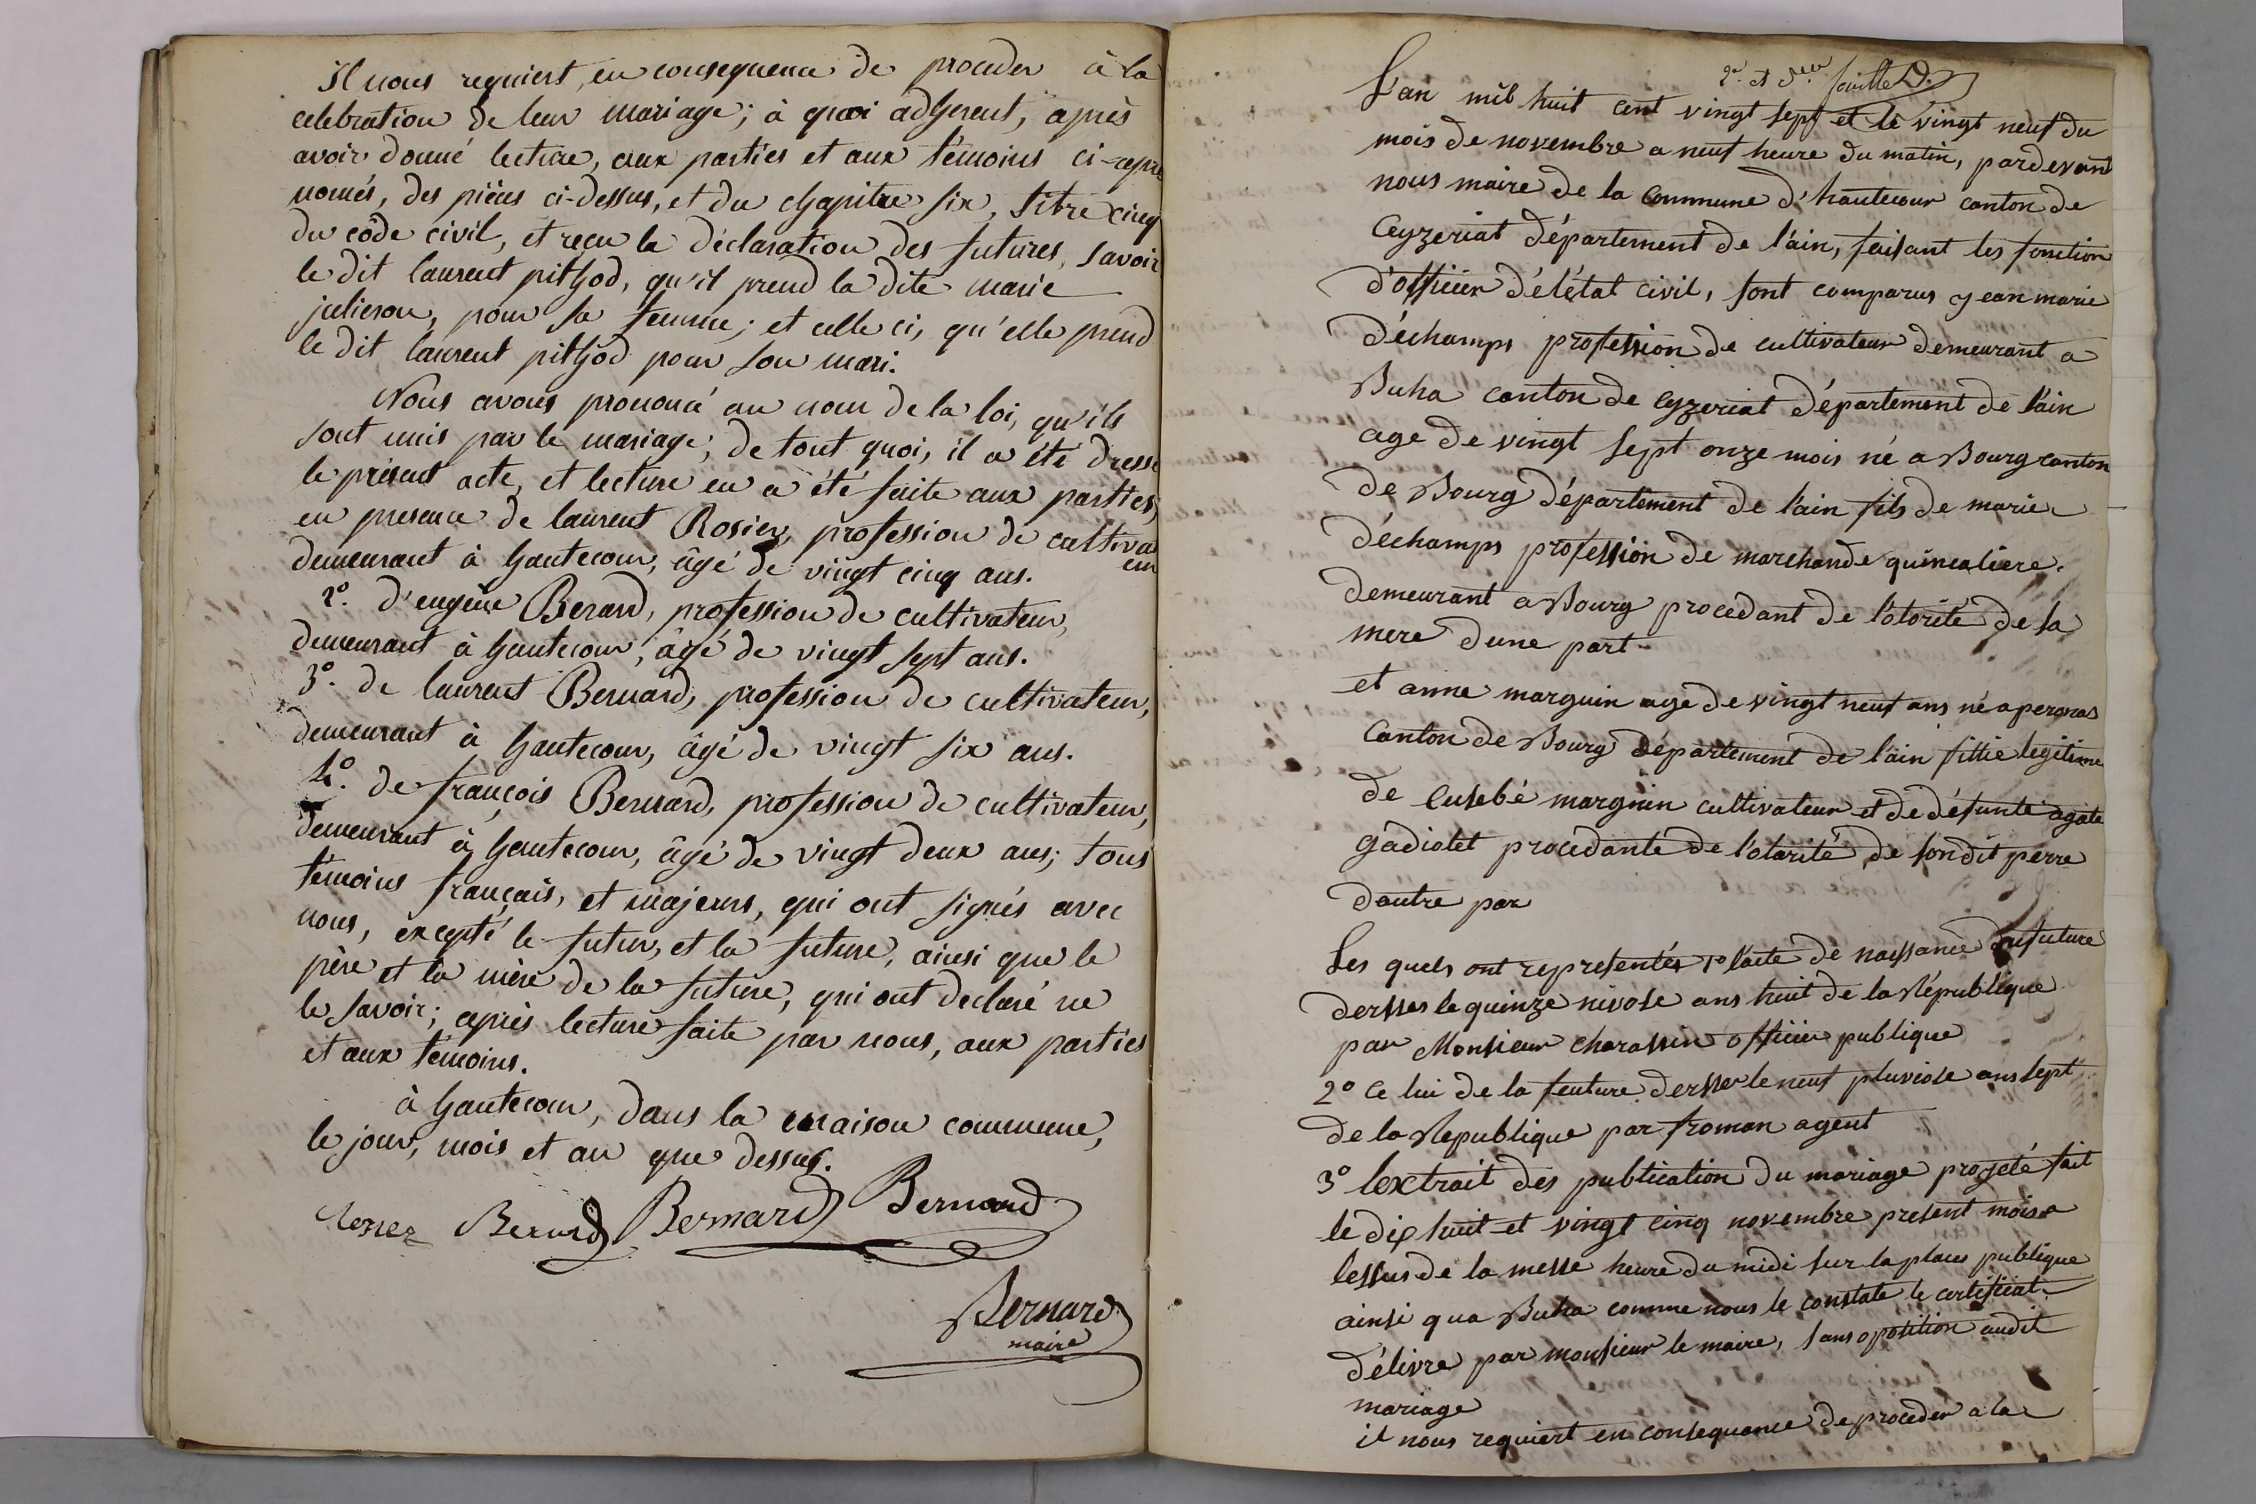 Il nous requiert, en consequence de proceder à la
celebration de leur mariage; à quoi adherent, après
avoir donné lecture, aux parties et aux témoins ci-apre
només, des pièces ci-dessus, et du chapitre six, titre cinq
du côde civil, et reçu la déclaration des futures, savoir
le dit laurent pithod, qu'il prend la dite marie
julieron, pour sa femme; et celle ci, qu'elle prend
le dit laurent pithod pour son mari.
Nous avons prononcé au nom de la loi, qu'ils
sont unis par le mariage; de tout quoi, il a été dressé
le présent acte, et lecture en a été faite aux parties,
en presence de laurent Rosier, profession de cultiva
eur
demeurant à hautecour, âgé de vingt cinq ans.
2º. d'eugène Berard, profession de cultivateur,
demeurant à hautecour, âgé de vingt sept ans.
3º. de laurent Bernard, profession de cultivateur,
demeurant à hautecour, âgé de vingt six ans.
4º. de françois Bernard, profession de cultivateur,
demeurant à hautecour, âgé de vingt deux ans; tous
témoins français, et majeurs, qui ont signés avec
nous, excepté le futur, et la future, ainsi que le
père et la mère de la future, qui ont declaré ne
le savoir; après lecture faite par nous, aux parties
et aux témoins.
à hautecour, dans la maison commune,
le jour, mois et an que dessus.
Berard Bernard Bernard
Bernard
maire
2e et feuille
L'an mil huit cent vingt sept et le vingt neuf du
mois de novembre a neuf heure du matin, pardevant
nous maire de la Commune d'hautecour canton de
Ceyzeriat département de l'ain, faisant les fonction
d'officier d'élétat civil, sont comparus jean marie
déchamps profession de cultivateur demeurant a
Buha canton de Ceyzeriat département de l'ain
age de vingt sept onze mois né a Bourg canton
de Bourg département de l'ain fils de marie
déchamps profession de marchande quincaliere.
demeurant a Bourg procedant de l'otorité de sa
mere dune part
et anne marguin age de vingt neuf ans né a peronas
Canton de Bourg département de l'ain fillie legitime
de Eusebé marguin cultivateur et de défunte agate
gadiolet procedante de l'otorité de sondit perre
dautre par
Les quels ont representés 1º l'acte de naissance du future
dersses le quinze nivose ans huit de la République
par Monsieur charassin officier publique
2º ce lui de la feuture dersser le neuf pluviose ans sept
de la Republique par froman agent
3º lextrait des publication du mariage projeté fait
le dix huit et vingt cinq novembre present mois a
lessus de la messe heure du midi sur la place publique
ainsi qua Buha comme nous le constate le certificat
délivre par monsieur le maire, sans oposition audit
mariage
il nous requiert en consequance de proceder a la